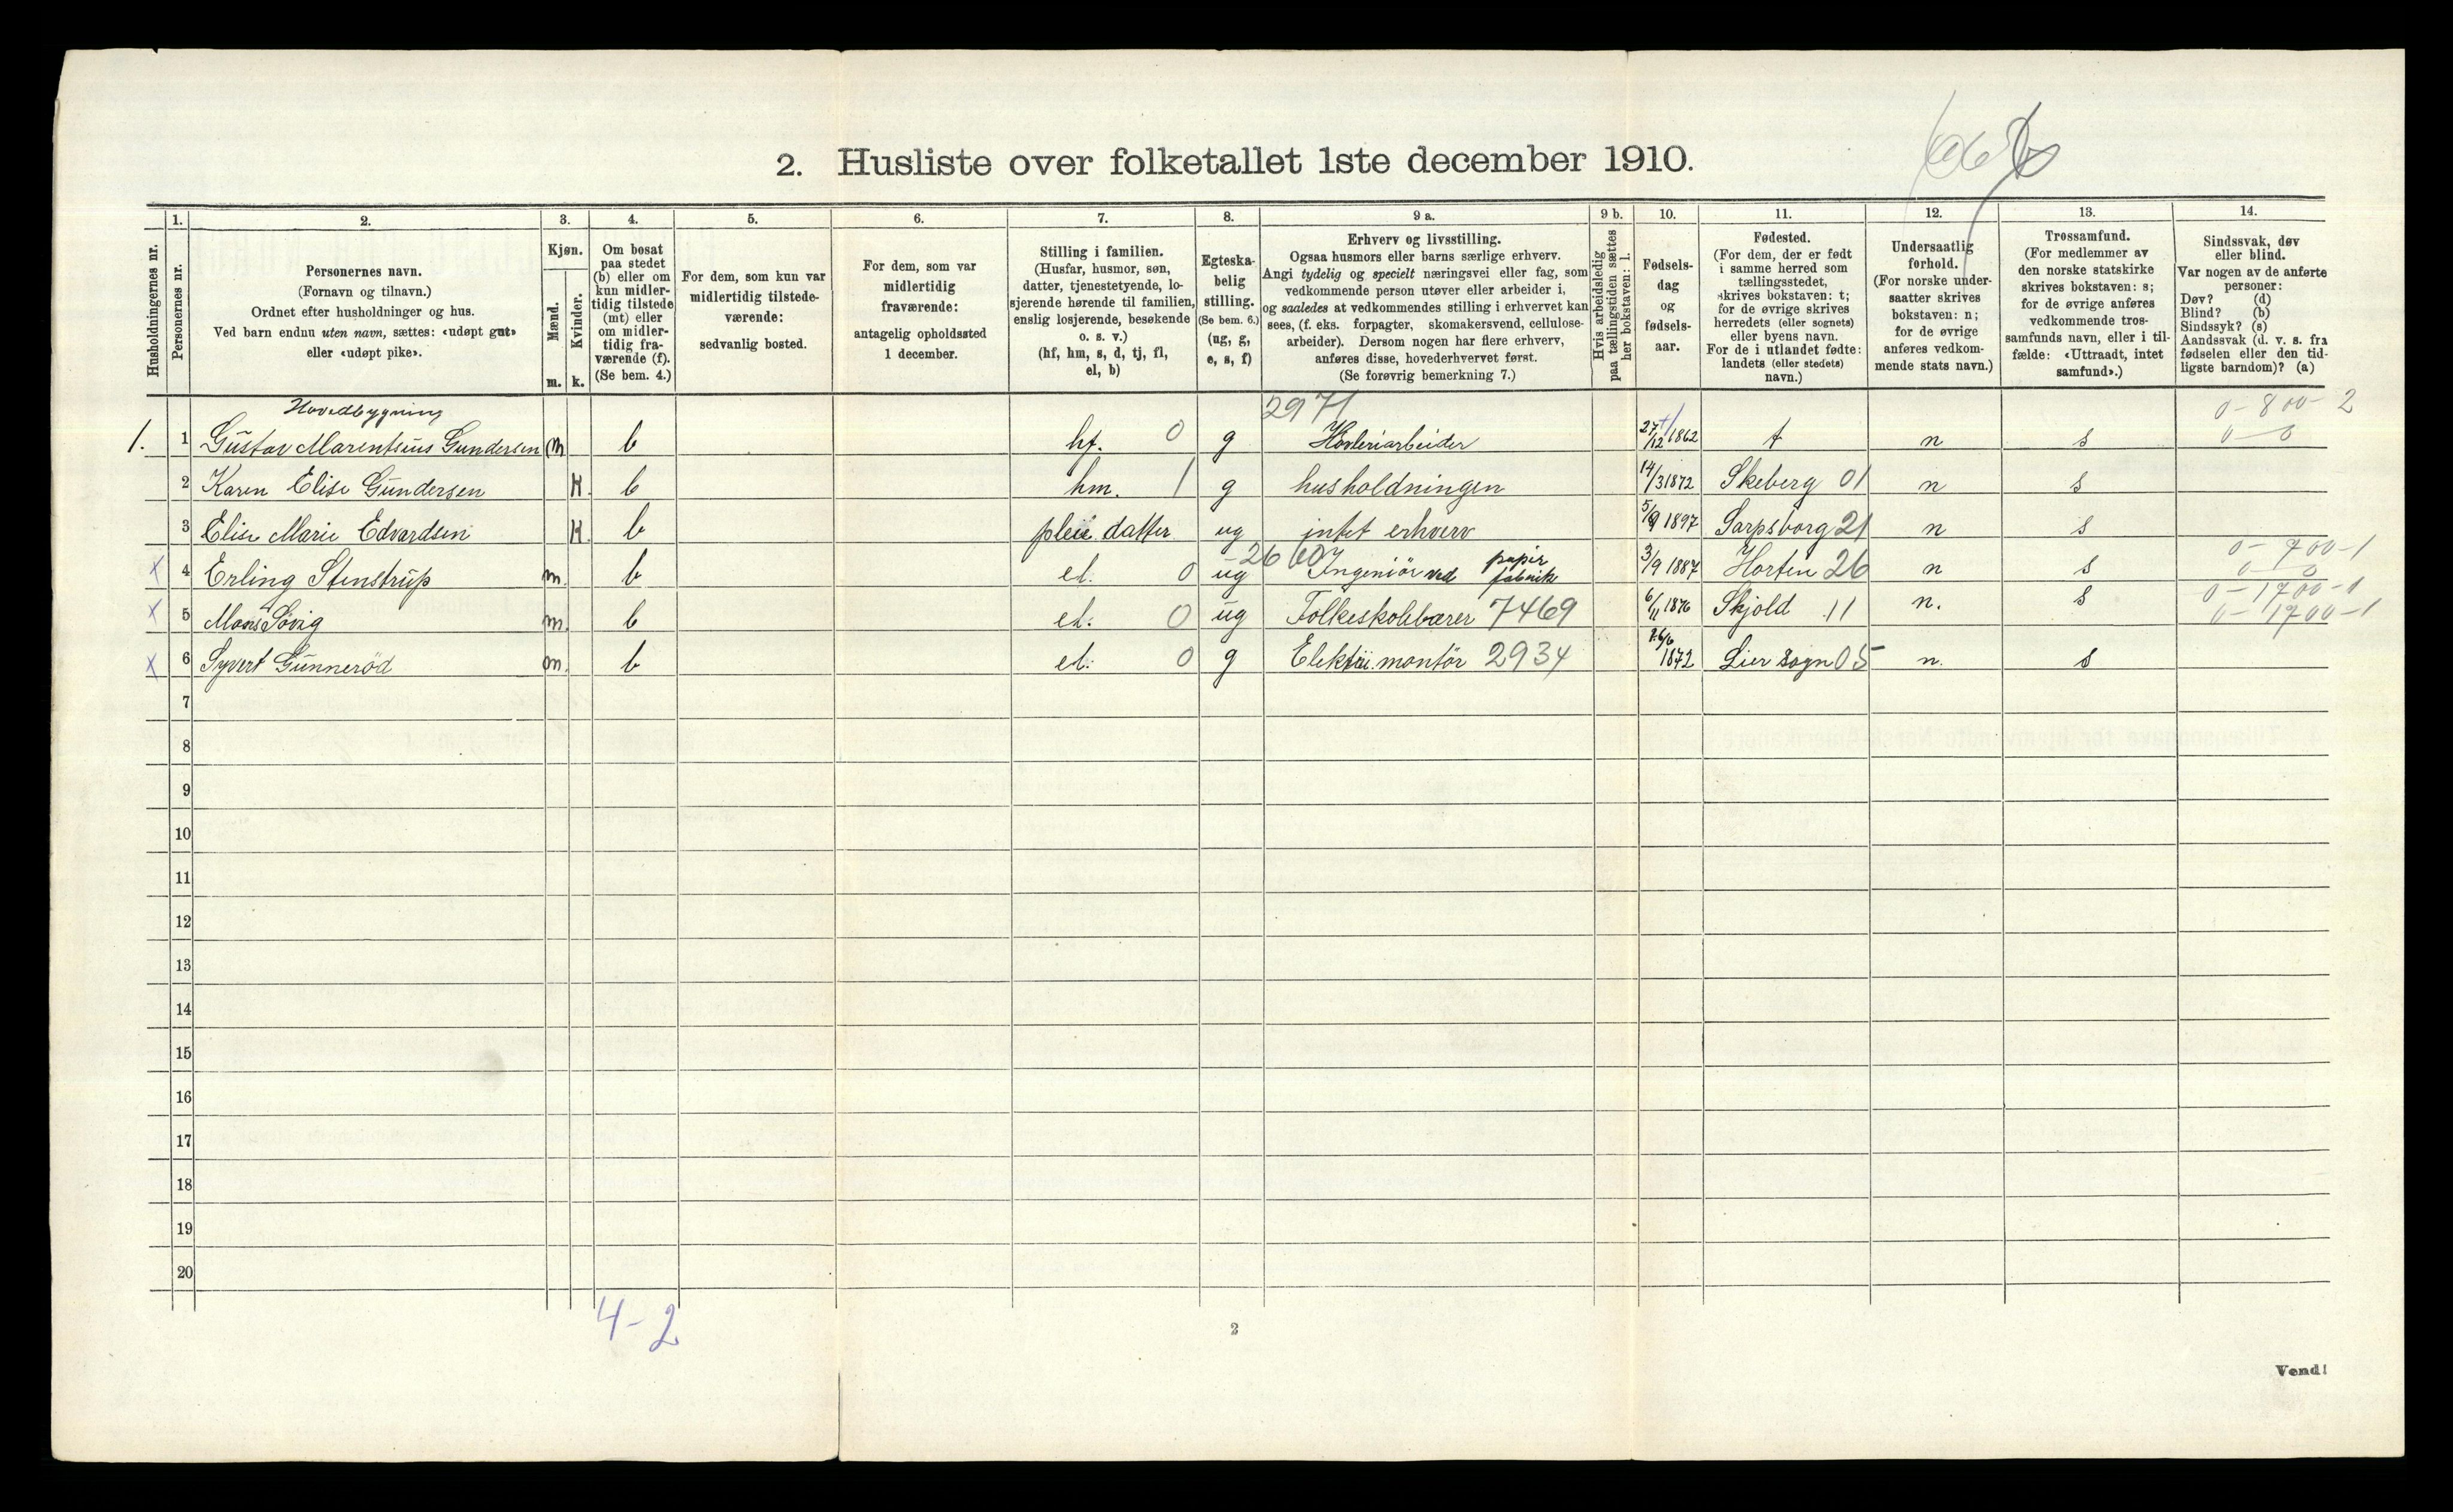 2. Husliste over folketallet 1ste december 1910.
Husholdningernes nr.
1.
Personernes nr.
2.
Personernes navn.
(Fornavn og tilnavn.)
Ordnet efter husholdninger og hus.
Ved barn endnu uten navn, sættes: «udøpt gut»
eller «udøpt pike».
3.
Kjøn.
Mænd.
Kvinder.
m. k.
4.
Om bosat
paa stedet
(b) eller om
kun midler-
tidig tilstede
(mt) eller
om midler-
tidig fra-
værende (f).
(Se bem. 4.)
5.
For dem, som kun var
midlertidig tilstede-
værende:
sedvanlig bosted.
6.
For dem, som var
midlertidig
fraværende:
antagelig opholdssted
1 december.
7.
Stilling i familien.
(Husfar, husmor, søn,
datter, tjenestetyende, lo-
sjerende hørende til familien,
enslig losjerende, besøkende
o. s. v.)
(hf, hm, s, d, tj, fl,
el, b)
8.
Egteska-
belig
stilling.
(Se bem. 6.)
(ug, g,
e, s, f)
9 a.
Erhverv og livsstilling.
Ogsaa husmors eller barns særlige erhverv.
Angi tydelig og specielt næringsvei eller fag, som
vedkommende person utøver eller arbeider i,
og saaledes at vedkommendes stilling i erhvervet kan
sees, (f. eks. forpagter, skomakersvend, cellulose-
arbeider). Dersom nogen har flere erhverv,
anføres disse, hovederhvervet først.
(Se forøvrig bemerkning 7.)
9 b.
Hvis arbeidsledig
paa tællingstiden sættes
her bokstaven: l.
10.
Fødsels-
dag
og
fødsels-
aar.
11.
Fødested.
(For dem, der er født
i samme herred som
tællingsstedet,
skrives bokstaven: t;
for de øvrige skrives
herredets (eller sognets)
eller byens navn.
For de i utlandet fødte:
landets (eller stedets)
navn.)
12.
Undersaatlig
forhold.
(For norske under-
saatter skrives
bokstaven: n;
for de øvrige
anføres vedkom-
mende stats navn.)
13.
Trossamfund.
(For medlemmer av
den norske statskirke
skrives bokstaven: s;
for de øvrige anføres
vedkommende tros-
samfunds navn, eller i til-
fælde: «Uttraadt, intet
samfund».)
14.
Sindssvak, døv
eller blind.
Var nogen av de anførte
personer:
Døv? (d)
Blind? (b)
Sindssyk? (s)
Aandssvak (d. v. s. fra
fødselen eller den tid-
ligste barndom)? (a)
Hovedbygning 2971 0-800-2
1. 1 Gustav Marentsius Gundersen m b hf. 0 g Høvleriarbeider 27/12 1862 t n s 0-0
2 Karen Elise Gundersen K. b hm. 1 g husholdningen 14/3 1872 Skeberg 01 n s
3 Elise Marie Edvardsen K. b pleie datter ug intet erhverv 5/9 1897 Sarpsborg 21 n s
x 4 Erling Stenstrup m. b el. 0 ug 2600 Ingeniör ved papir fabrik 3/9 1887 Horten 26 n s 0-700-1 0-0
x 5 Mons Søvig m. b el: 0 ug Folkeskolelærer 7469 6/11 1876 Skjold 11 n. s 0-1700-1 0-1700-1
x 6 Syvert Gunneröd m. b el: 0 g Elektri. montör 2934 26/6 1872 Lier sogn 05 n. s
7
8
9
10
11
12
13
14
15
16
17
18
19
20
4-2
2
Vend!